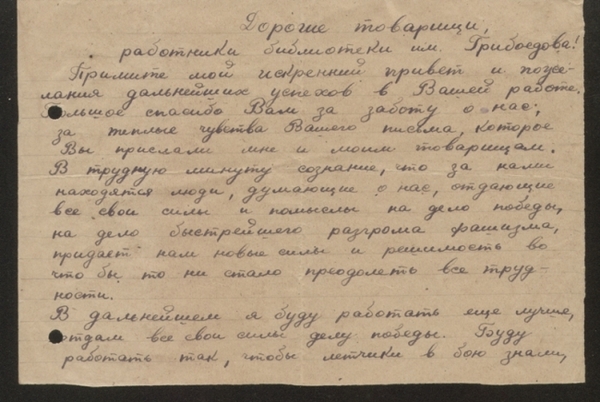 Дорогие товарищи,
работники библиотеки им. Грибоедова!
Примите мой искренний привет и поже-
лания дальнейших успехов в Вашей работе.
Большое спасибо Вам за заботу о нас;
за теплые чувства Вашего письма, которое
Вы прислали мне и моим товарищам.
В трудную минуту сознание, что за нами
находятся люди, думающие о нас, отдающие
все свои силы и помыслы на дело победы,
на дело быстрейшего разгрома фашизма,
придает нам новые силы и решимость во
что бы то ни стало преодолеть все труд-
ности.
В дальнейшем я буду работать еще лучше,
отдам все свои силы делу победы. Буду
работать так, чтобы летчики в бою знали,